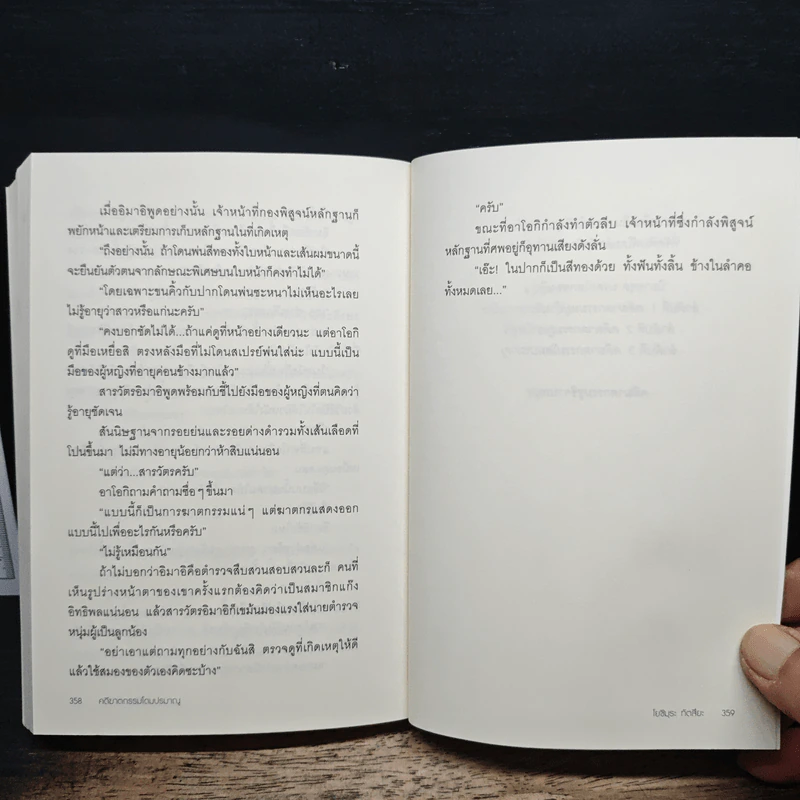 เมื่ออิมาอิพูดอย่างนั้น เจ้าหน้าที่กองพิสูจน์หลักฐานก็
พยักหน้าและเตรียมการเก็บหลักฐานในที่เกิดเหตุ
“ถึงอย่างนั้น ถ้าโดนพ่นสีทองทั้งใบหน้าและเส้นผมขนาดนี้
จะยืนยันตัวตนจากลักษณะพิเศษบนใบหน้าก็คงทำไม่ได้”
“โดยเฉพาะขนคิ้วกับปากโดนพ่นซะหนาไม่เห็นอะไรเลย
ไม่รู้อายุว่าสาวหรือแก่นะครับ”
“คงบอกชัดไม่ได้...ถ้าแค่ดูที่หน้าอย่างเดียวนะ แต่อาโอกิ
ดูที่มือเหยื่อสิ ตรงหลังมือที่ไม่โดนสเปรย์พ่นใส่น่ะ แบบนี้เป็น
มือของผู้หญิงที่อายุค่อนข้างมากแล้ว”
สารวัตรอิมาอิพูดพร้อมกับชี้ไปยังมือของผู้หญิงที่ตนคิดว่า
รู้อายุชัดเจน
สันนิษฐานจากรอยย่นและรอยด่างดำรวมทั้งเส้นเลือดที่
โปนขึ้นมา ไม่มีทางอายุน้อยกว่าห้าสิบแน่นอน
“แต่ว่า...สารวัตรครับ”
อาโอกิถามคำถามซื่อๆ ขึ้นมา
“แบบนี้ก็เป็นการฆาตกรรมแน่ๆ แต่ฆาตกรแสดงออก
แบบนี้ไปเพื่ออะไรกันหรือครับ”
“ไม่รู้เหมือนกัน”
ถ้าไม่บอกว่าอิมาอิคือตำรวจสืบสวนสอบสวนละก็ คนที่
เห็นรูปร่างหน้าตาของเขาครั้งแรกต้องคิดว่าเป็นสมาชิกแก๊ง
อิทธิพลแน่นอน แล้วสารวัตรอิมาอิก็เขม้นมองแรงใส่นายตำรวจ
หนุ่มผู้เป็นลูกน้อง
“อย่าเอาแต่ถามทุกอย่างกับฉันสิ ตรวจดูที่เกิดเหตุให้ดี
แล้วใช้สมองของตัวเองคิดซะบ้าง”
358 คดีฆาตกรรมโดมปรมาณู
“ครับ”
ขณะที่อาโอกิกำลังทำตัวลีบ เจ้าหน้าที่ซึ่งกำลังพิสูจน์
หลักฐานที่ศพอยู่ก็อุทานเสียงดังลั่น
“เอ๊ะ! ในปากก็เป็นสีทองด้วย ทั้งฟันทั้งลิ้น ข้างในลำคอ
ทั้งหมดเลย...”
โยชิมุระ ทัตสึยะ 359